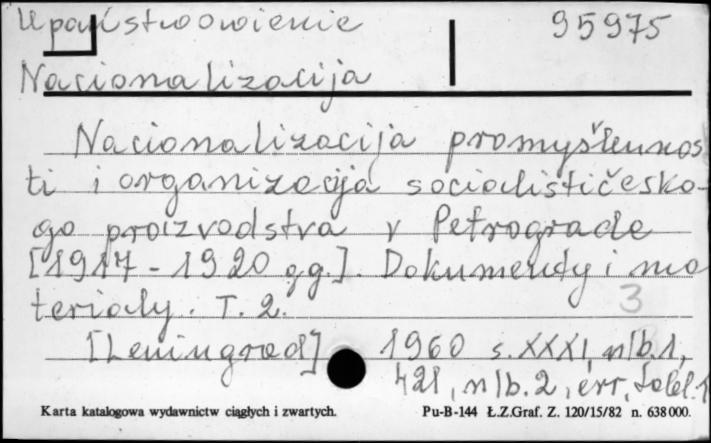 Upaństwowienie 95975
Nacionalizacija
Nacionalizacija promyšlennos
ti i organizacija socialističesko-
go proizvodstva v Petrograde
[1917-1920 gg.]. Dokumenty i ma
teriały. T. 2. 3
[Leningrad] 1960 s. XXXI, nlb. 1,
421, nlb. 2, err, tabl. 1
Karta katalogowa wydawnictw ciągłych i zwartych. Pu-B-144 Ł.Z.Graf. Z. 120/15/82 n. 638000.